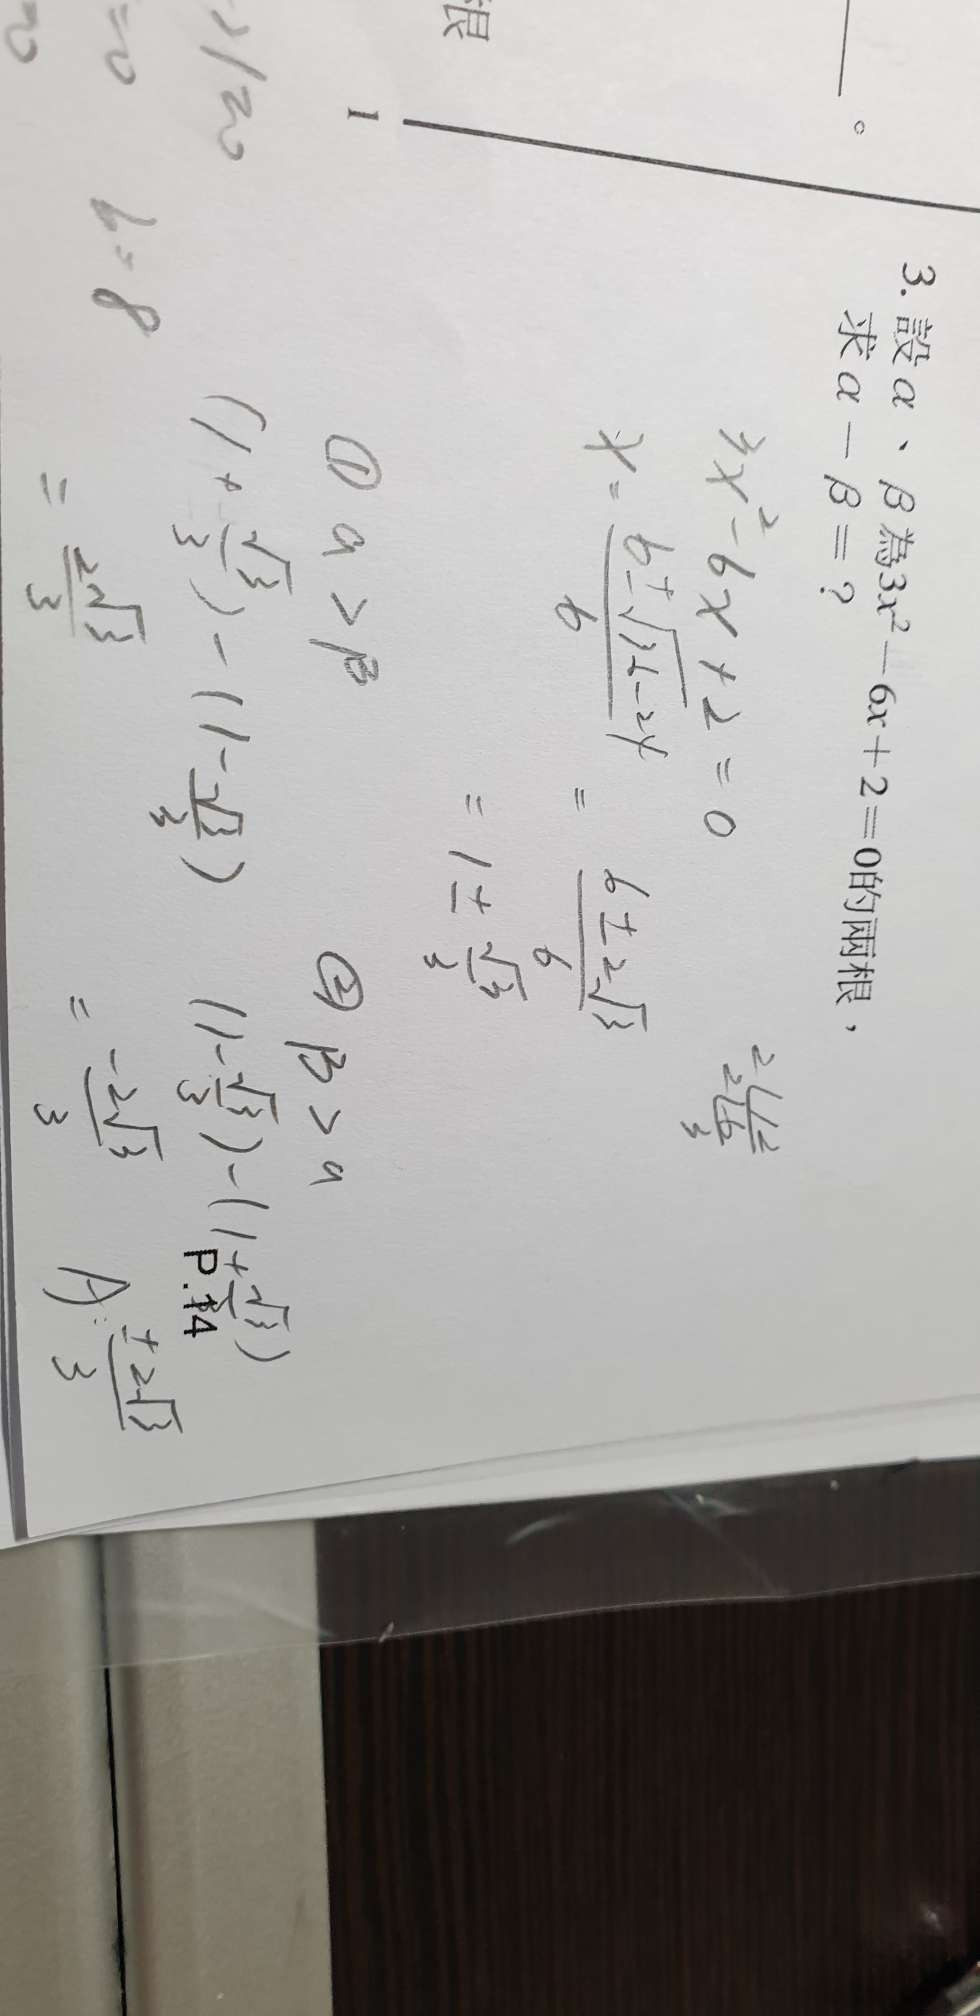 根
。
1
3. 設α、β為3x²－6x＋2＝0的兩根，
求α－β＝？
3x² - 6x + 2 = 0
x = 6±√36-24 / 6
= 6±2√3 / 6
= 1 ± √3/3
2|12
2|6
3
① α > β
(1 + √3/3) - (1 - √3/3)
= 2√3/3
② β > α
(1 - √3/3) - (1 + √3/3)
= -2√3/3
A: ±2√3/3
P.14
b = 8